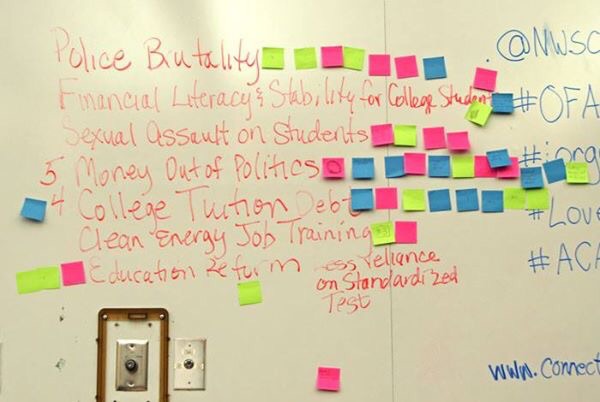 Police Brutality
Financial Literacy & Stability for College Student
Sexual Assault on Students
5 Money Out of Politics
4 College Tuition Debt
Clean Energy Job Training
Education Reform less reliance
on Standardized
Test
@MWSC
#OFA
#iorg
#Love
#ACA
www.connect